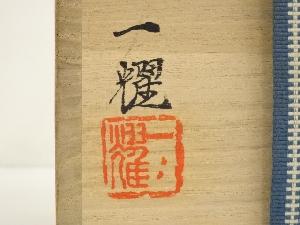 一耀
一耀